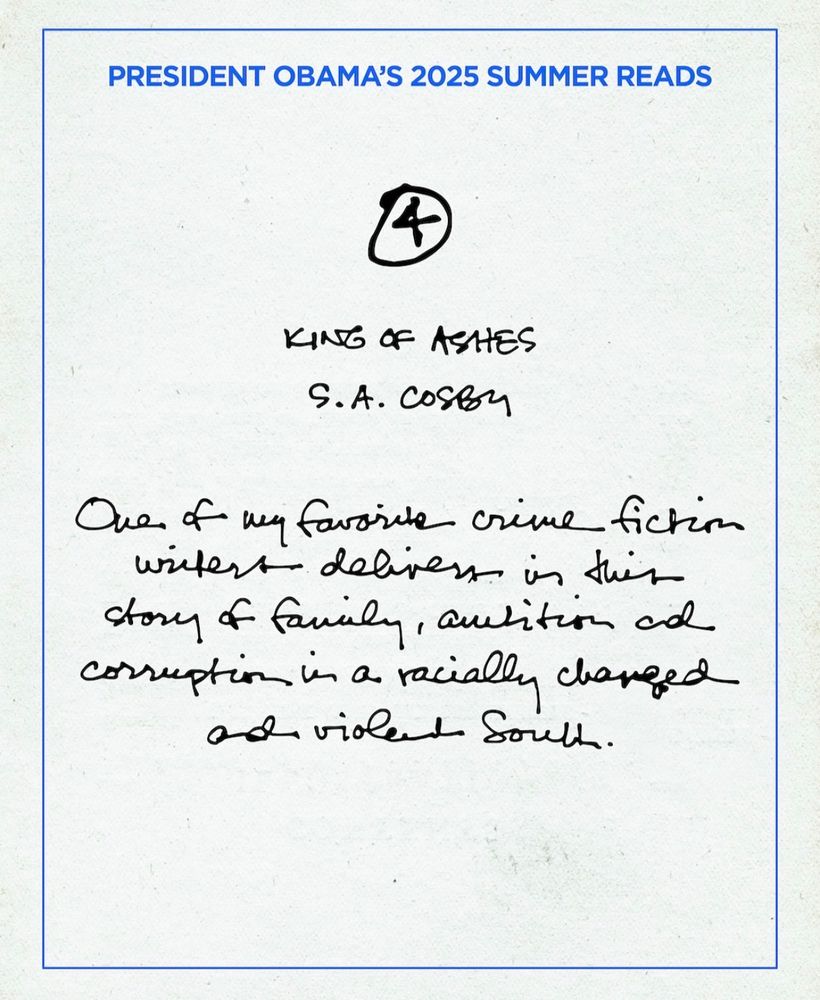 PRESIDENT OBAMA'S 2025 SUMMER READS
4
KING OF ASHES
S.A. COSBY
One of my favorite crime fiction
writers delivers in this
story of family, ambition and
corruption in a racially charged
and violent South.